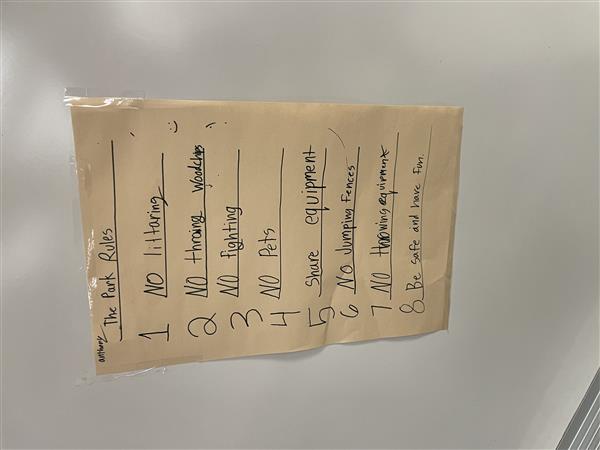 anthony
The Park Rules
1 NO littaring
2 NO throing Woodchips
3 NO fighting
4 NO Pets
5 Share equipment
6 NO Jumping Fences
7 NO throwing equipment
8 Be safe and have fun.